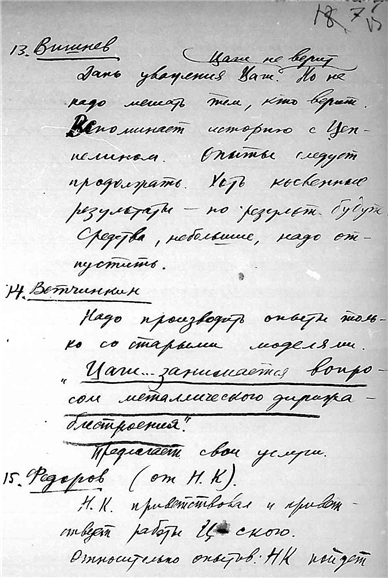 18 7
15
13. Вишнев Цаги не верит
Дань уважения Цаги. Но не
надо мешать тем, кто верит.
Вспоминает историю с Цеп-
пелином. Опыты следует
продолжать. Хоть косвенные
результаты – но результ. будут
Средства, небольшие, надо от-
пустить.
14. Ветчинкин
Надо производить опыты толь-
ко со старыми моделями.
"Цаги... занимается вопро-
сом металлического дирижа-
блестроения"
Предлагает свои услуги.
15. Федоров (от Н.К).
Н.К. приветствовал и привет-
ствует работы Ц-ского.
Относительно опытов: НК пойдет